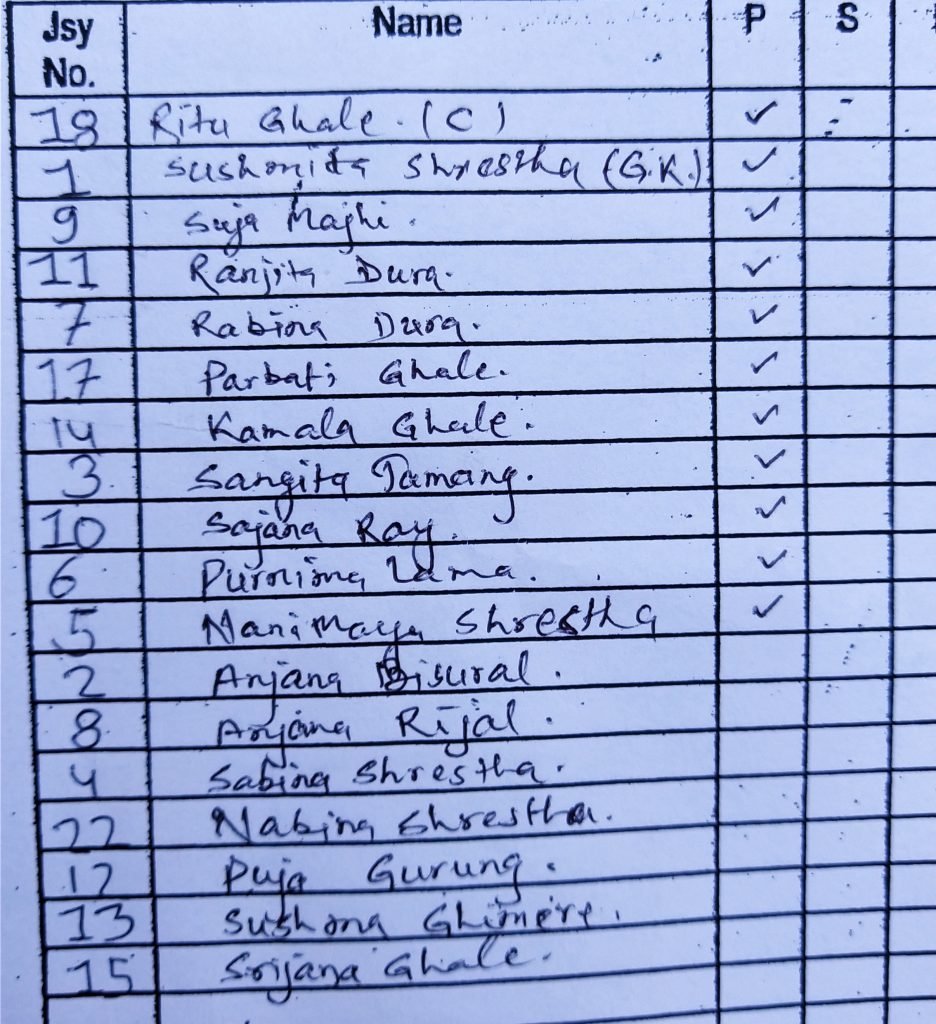 Jsy No. Name P S
18 Ritu Ghale. (C) ✓
1 Sushmita Shrestha (G.K.) ✓
9 Suja Majhi. ✓
11 Ranjita Dura. ✓
7 Rabina Dura. ✓
17 Parbati Ghale. ✓
14 Kamala Ghale. ✓
3. Sangita Tamang. ✓
10 Sajana Ray. ✓
6 Purnima Lama. ✓
5 Manimaya Shrestha ✓
2 Anjana Bisural.
8 Anjana Rijal.
4 Sabina Shrestha.
22 Nabina Shrestha.
12 Puja Gurung.
13 Sushma Ghimere.
15 Srijana Ghale.